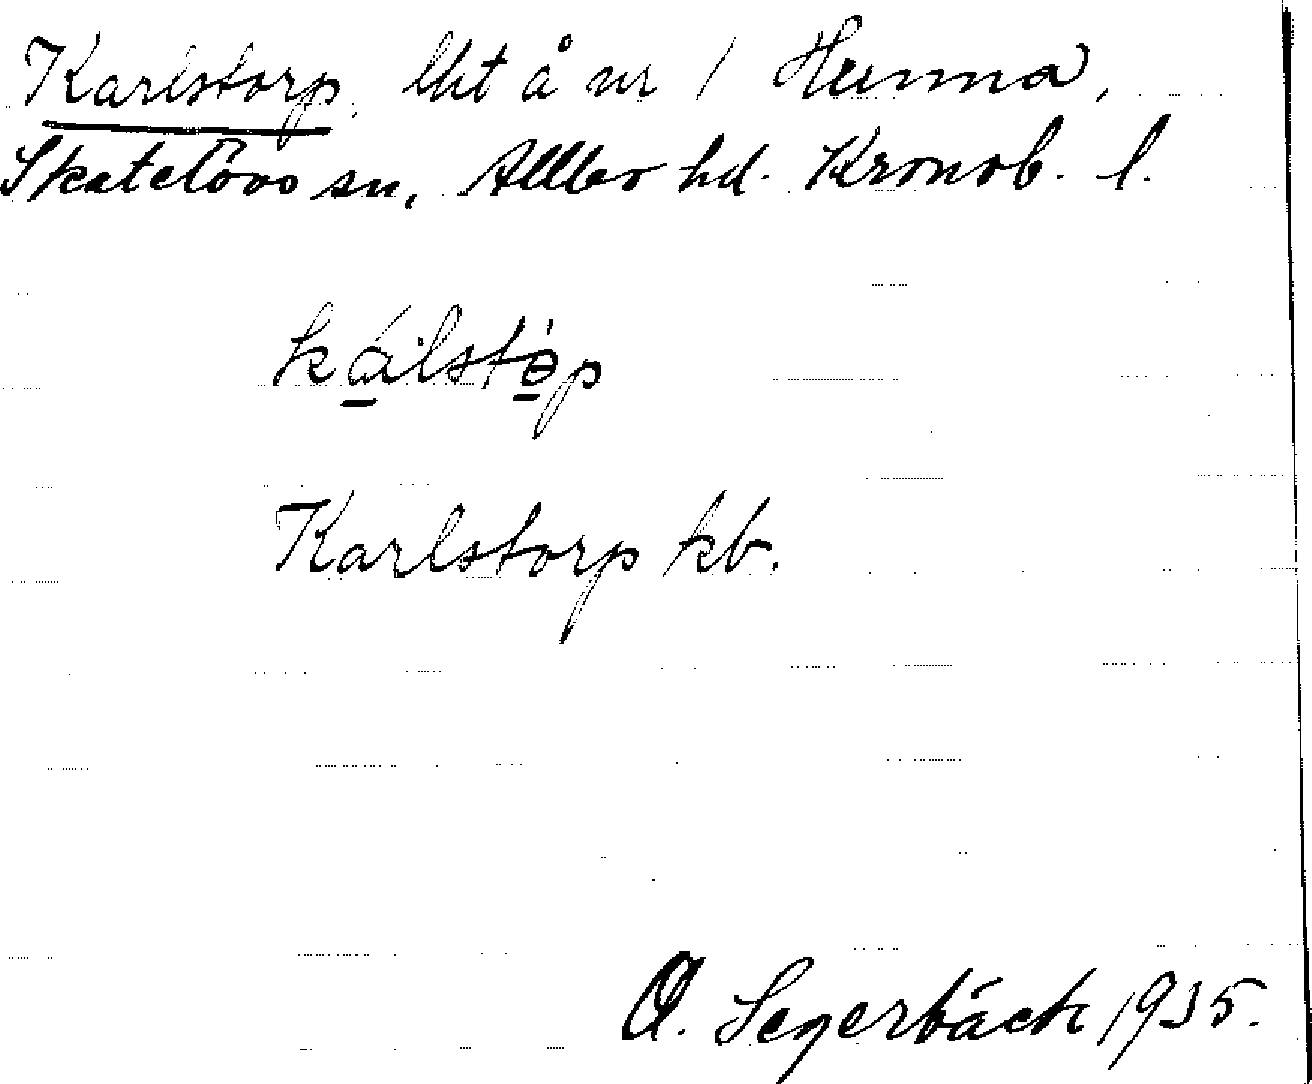 Karlstorp, lht å nr 1 Hunna,
Skatelövs sn, Allbo hd. Kronob. l.
kálstɵ̀p
Karlstorp kb.
O. Segerbäck 1935.